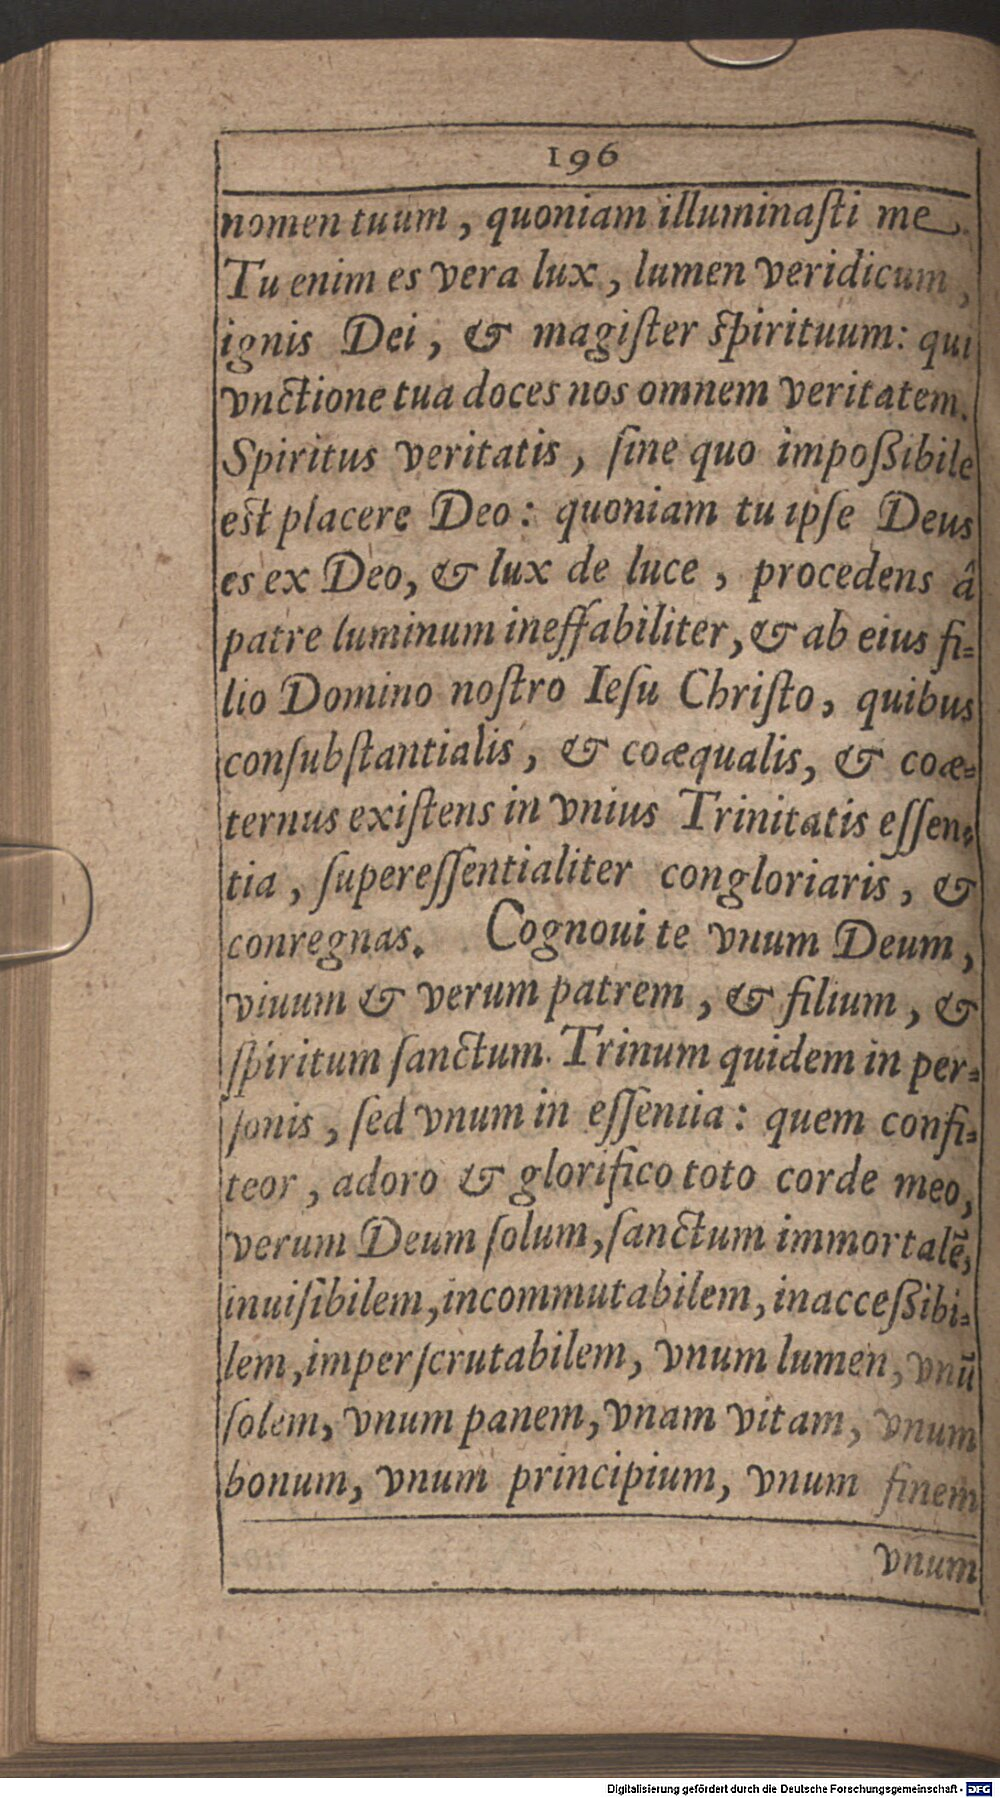 196
nomen tuum, quoniam illuminaſti me.
Tu enim es vera lux, lumen veridicum,
ignis Dei, & magiſter ſpirituum: qui
vnctione tua doces nos omnem veritatem.
Spiritus veritatis, ſine quo impoßibile
eſt placere Deo: quoniam tu ipſe Deus
es ex Deo, & lux de luce, procedens â
patre luminum ineffabiliter, & ab eius fi-
lio Domino noſtro Ieſu Chriſto, quibus
conſubſtantialis, & coæqualis, & coæ-
ternus exiſtens in vnius Trinitatis eſſen-
tia, ſupereſſentialiter congloriaris, &
conregnas. Cognoui te vnum Deum,
viuum & verum patrem, & filium, &
ſpiritum ſanctum. Trinum quidem in per-
ſonis, ſed vnum in eſſentia: quem confi-
teor, adoro & glorifico toto corde meo,
verum Deum ſolum, ſanctum immortalē,
inuiſibilem, incommutabilem, inacceßibi-
lem, imperſcrutabilem, vnum lumen, vnū
ſolem, vnum panem, vnam vitam, vnum
bonum, vnum principium, vnum finem
vnum
Digitalisierung gefördert durch die Deutsche Forschungsgemeinschaft - DFG